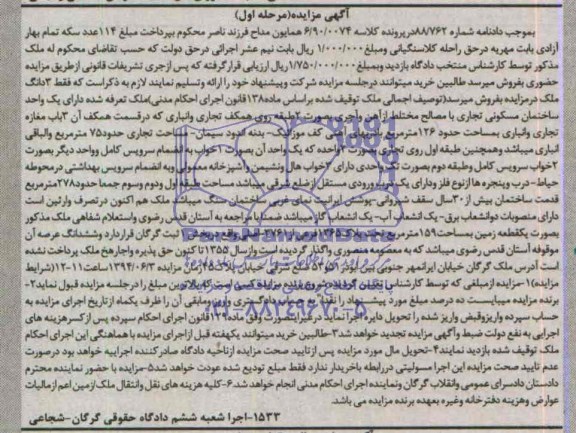 آگهی مزایده(مرحله اول)
بموجب دادنامه شماره ۸۸/۷۶۲پرونده کلاسه ۶/۹۰/۰۰۷۴ همایون مداح فرزند ناصر محکوم بپرداخت مبلغ ۱۱۴عدد سکه تمام بهار
آزادی بابت مهریه درحق راحله کلاسنگیانی ومبلغ۱/۰۰۰/۰۰۰ریال بابت نیم عشر اجرائی درحق دولت که حسب تقاضای محکوم له ملک
مذکور توسط کارشناس منتخب دادگاه بازدید وبمبلغ۱/۷۵۰/۰۰۰/۰۰۰ریال ارزیابی قرارگرفته که پس ازجری تشریفات قانونی ازطریق مزایده
حضوری بفروش میرسد طالبین خرید میتوانند درجلسه مزایده شرکت وپیشنهاد خود را ارائه وتسلیم نمایند لازم به ذکراست که فقط ۳دانگ
ملک درمزایده بفروش میرسد(توصیف اجمالی ملک توقیف شده براساس ماده۱۳۸قانون اجرای احکام مدنی)ملک تعرفه شده دارای یک واحد
ساختمان مسکونی تجاری با مصالح مختلط ازآهن وآجری بصورت ۲طبقه روی همکف تجاری وانباری که درقسمت همکف آن ۳باب مغازه
تجاری وانباری بمساحت حدود ۱۲۶مترمربع کف موزائیک- بدنه اندود سیمان- مساحت تجاری حدود۷۵ مترمربع والباقی
انباری میباشد وهمچنین طبقه اول روی تجاری بصورت ۲واحده که یک واحد آن بصورت ۱خواب به انضمام سرویس کامل وواحد دیگر بصورت
۲خواب سرویس کامل وطبقه دوم بصورت تک واحدی دارای ۳خواب هال ونشیمن وآشپزخانه معمولی وبه انضمام سرویس بهداشتی درمحوطه
حیاط- درب وپنجره ها ازنوع فلز ودارای یک درب ورودی مستقل ازضلع شرقی میباشد مساحت طبقه اول ودوم وسوم جمعا حدود۲۷۸مترمربع
قدمت ساختمان بیش از ۳۰سال سقف شیروانی-پوشش ایرانیت نمای غربی ساختمان سنگ میباشد ملک هم اکنون در تصرف وارثین است
دارای منصوبات دوانشعاب برق- یک انشعاب آب- یک انشعاب گاز میباشد ضمنا با مراجعه به آستان قدس رضوی واستعلام شفاهی ملک مذکور
بصورت یکقطعه زمین بمساحت۱۵۹مترمربع تحت پلاک ۱۲۶۵فرعی از ۳۷۶۱اصلی واقع دربخش ۱ ثبت گرگان قراردارد وششدانگ عرصه آن
موقوفه آستان قدس رضوی میباشد که به مستاجره معصومه صفوری واگذار گردیده است واز سال ۱۳۵۵تاکنون حق پذیره واجارهخ ملک پرداخت نشده
است آدرس ملک گرگان خیابان ایرانمهر جنوبی بین ۵۲و۵۳ ضلع شرقی خیابان پلاک۲۵۵زمان مزایده ۱۳۹۴/۰۶/۳ ساعت۱۱-۱۲(شرایط
مزایده)۱-مزایده ازمبلغی که توسط کارشناس تعیین گردیده شروع وبرنده مزایده کسی است که بالاترین مبلغ را درجلسه مزایده قبول نماید۲-
برنده مزایده میبایست ده درصد مبلغ مورد پیشنهاد را نقدا به حساب دادگستری واریز ومابقی آن را ظرف یکماه ازتاریخ اجرای مزایده به
حساب سپرده واریزوقبض واریز شده را تحویل دایره اجرا نماید درغیراینصورت وفق ماده۱۲۹قانون اجرای احکام سپرده پس از کسرهزینه های
اجرایی به نفع دولت ضبط وآگهی مزایده تجدید خواهد شد۳-طالبین خرید میتوانند یکهفته قبل ازاجرای مزایده با هماهنگی این اجرای احکام
ملک توقیف شده بازدید نمایند۴-تحویل مال مورد مزایده پس ازتایید صحت مزایده ازناحیه دادگاه صادرکننده اجراییه خواهد بود درصورت
عدم تایید صحت مزایده این اجرا مسولیتی دررابطه باخریدار ندارد فقط مبلغ تودیع شده عودت خواهد شد۵-مزایده با حضور نماینده محترم
دادستان دادسرای عمومی وانقلاب گرگان ونماینده اجرای احکام مدنی انجام خواهد شد.۶-کلیه هزینه های نقل وانتقال ملک ازمین اعم ازمالیات
عوارض وهزینه دفترخانه وغیره بعهده برنده مزایده می باشد.
۱۵۳۳-اجرا شعبه ششم دادگاه حقوقی گرگان-شجاعی
ParsNamadData
۰۲۱-۸۸۳۴۹۶۷۰-۵